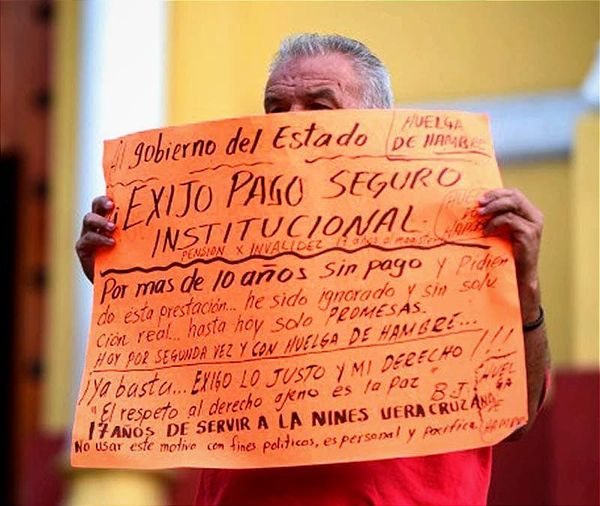 Al gobierno del Estado
HUELGA
DE HAMBRE
¡EXIJO PAGO SEGURO
INSTITUCIONAL.
PENSION X INVALIDEZ 17 años al magisterio
HUELGA
DE
HAMBRE
Por mas de 10 años sin pago y Pidien
do esta prestación... he sido ignorado y sin solu
ción real... hasta hoy solo PROMESAS.
HOY POR SEGUNDA VEZ Y CON HUELGA DE HAMBRE...
¡Ya basta... EXIGO LO JUSTO Y MI DERECHO!!!
"El respeto al derecho ajeno es la Paz" B.J.
HUEL
GA
DE
HAMBRE
17 AÑOS DE SERVIR A LA NINES VERACRUZANA
No usar este motivo con fines politicos, es personal y pacifica!